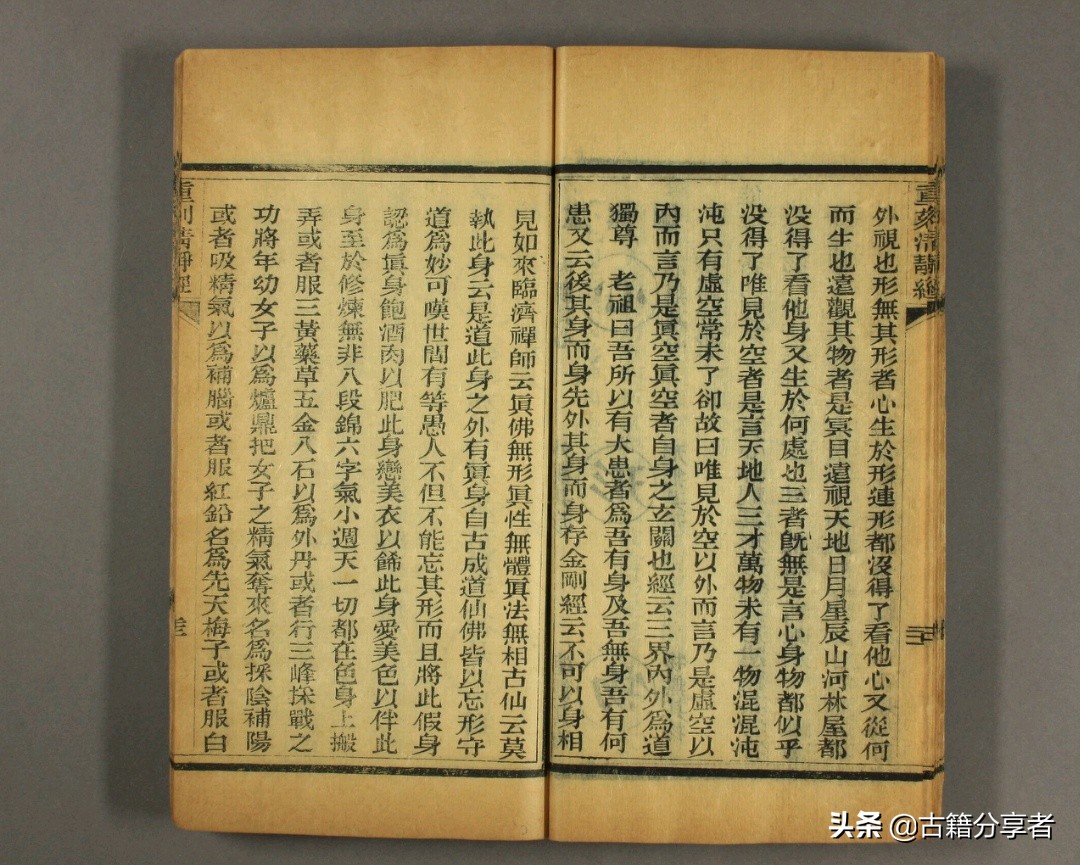 重刻清靜經
外視也形無其形者心生於形連形都沒得了看他心又從何
而生也遠觀其物者是冥目遠視天地日月星辰山河林屋都
没得了看他身又生於何處也三者旣無是言心身物都似乎
没得了唯見於空者是言天地人三才萬物未有一物混混沌
沌只有虛空常未了卻故曰唯見於空以外而言乃是虛空以
內而言乃是眞空眞空者自身之玄關也經云三界內外爲道
獨尊　老祖曰吾所以有大患者爲吾有身及吾無身吾有何
患又云後其身而身先外其身而身存金剛經云不可以身相
見如來臨濟禪師云眞佛無形眞性無體眞法無相古仙云莫
執此身云是道此身之外有眞身自古成道仙佛皆以忘形守
道爲妙可嘆世間有等愚人不但不能忘其形而且將此假身
認爲眞身飽酒肉以肥此身戀美衣以餙此身愛美色以伴此
身至於修煉無非八段錦六字氣小週天一切都在色身上搬
弄或者服三黃藥草五金八石以爲外丹或者行三峰採戰之
功將年幼女子以爲爐鼎把女子之精氣奪來名爲採陰補陽
或者吸精氣以爲補腦或者服紅鉛名爲先天梅子或者服白
重刻清靜經
头条 @古籍分享者